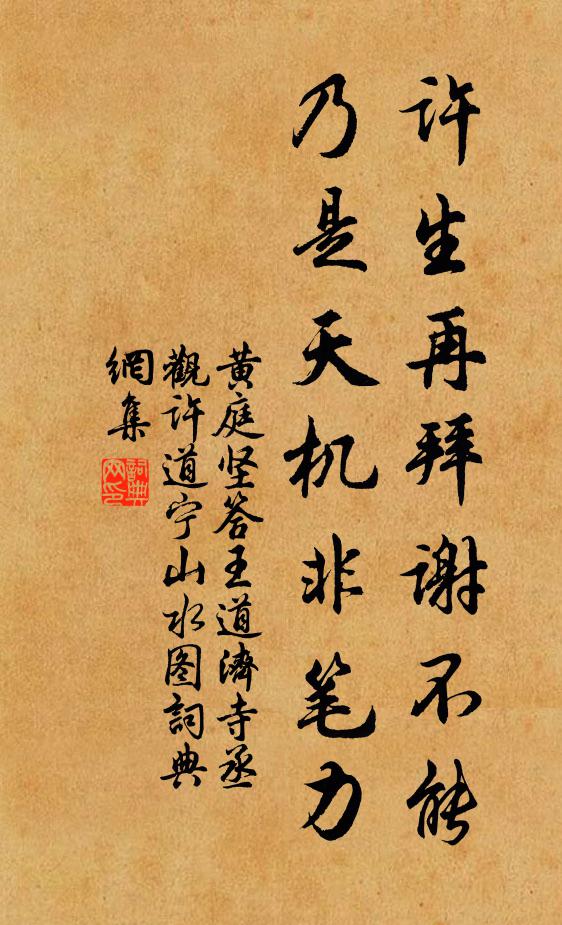 许生再拜谢不能
乃是天机非笔力
黄庭坚答王道濟寺丞
觀许道宁山水图詞典
網集
詞典
网印